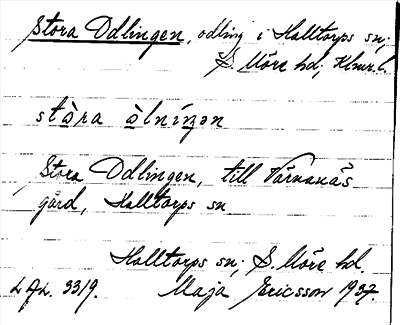 Stora Odlingen, odling i Halltorps sn;
S. Möre hd; Klmr.l.
stòra òlníŋən
Stora Odlingen, till Värnanäs
gård, Halltorps sn
Halltorps sn; S. Möre hd.
LAL. 3319. Maja Ericsson 1937.